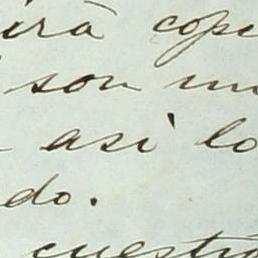 irá copi
son un
asi lo
do.
cuestió